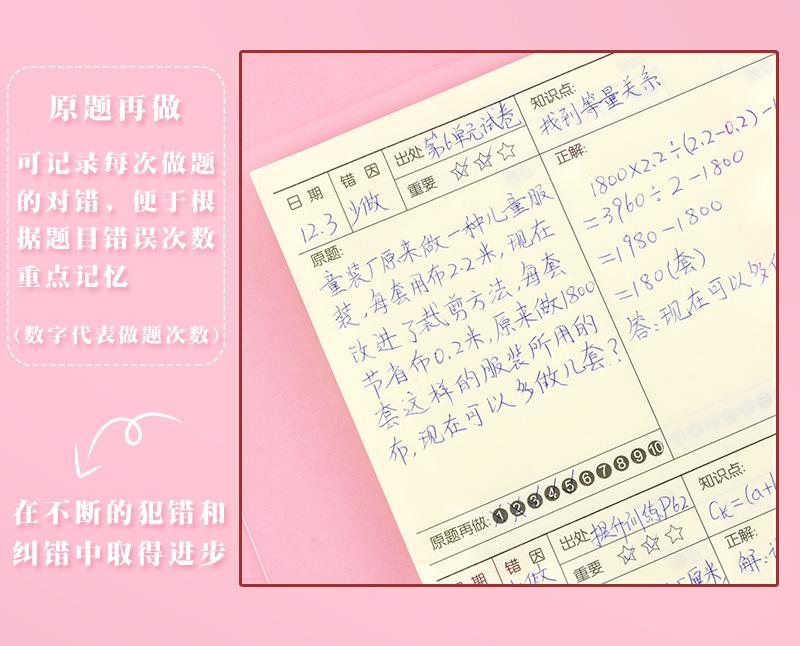 原题再做
可记录每次做题
的对错，便于根
据题目错误次数
重点记忆
(数字代表做题次数)
在不断的犯错和
纠错中取得进步
日期 12.3
错因 少做
出处 第6单元试卷
重要 ☆☆☆
知识点:
找到等量关系
原题:
童装厂原来做一种儿童服
装,每套用布2.2米,现在
改进了裁剪方法,每套
节省布0.2米,原来做1800
套这样的服装所用的
布,现在可以多做几套?
正解:
1800×2.2÷(2.2-0.2)-
=3960÷2-1800
=1980-1800
=180(套)
答:现在可以多
原题再做: 1 2 3 4 5 6 7 8 9 10
期
错因
出处 提升训练P62
重要 ☆☆☆
知识点:
正解:
解: